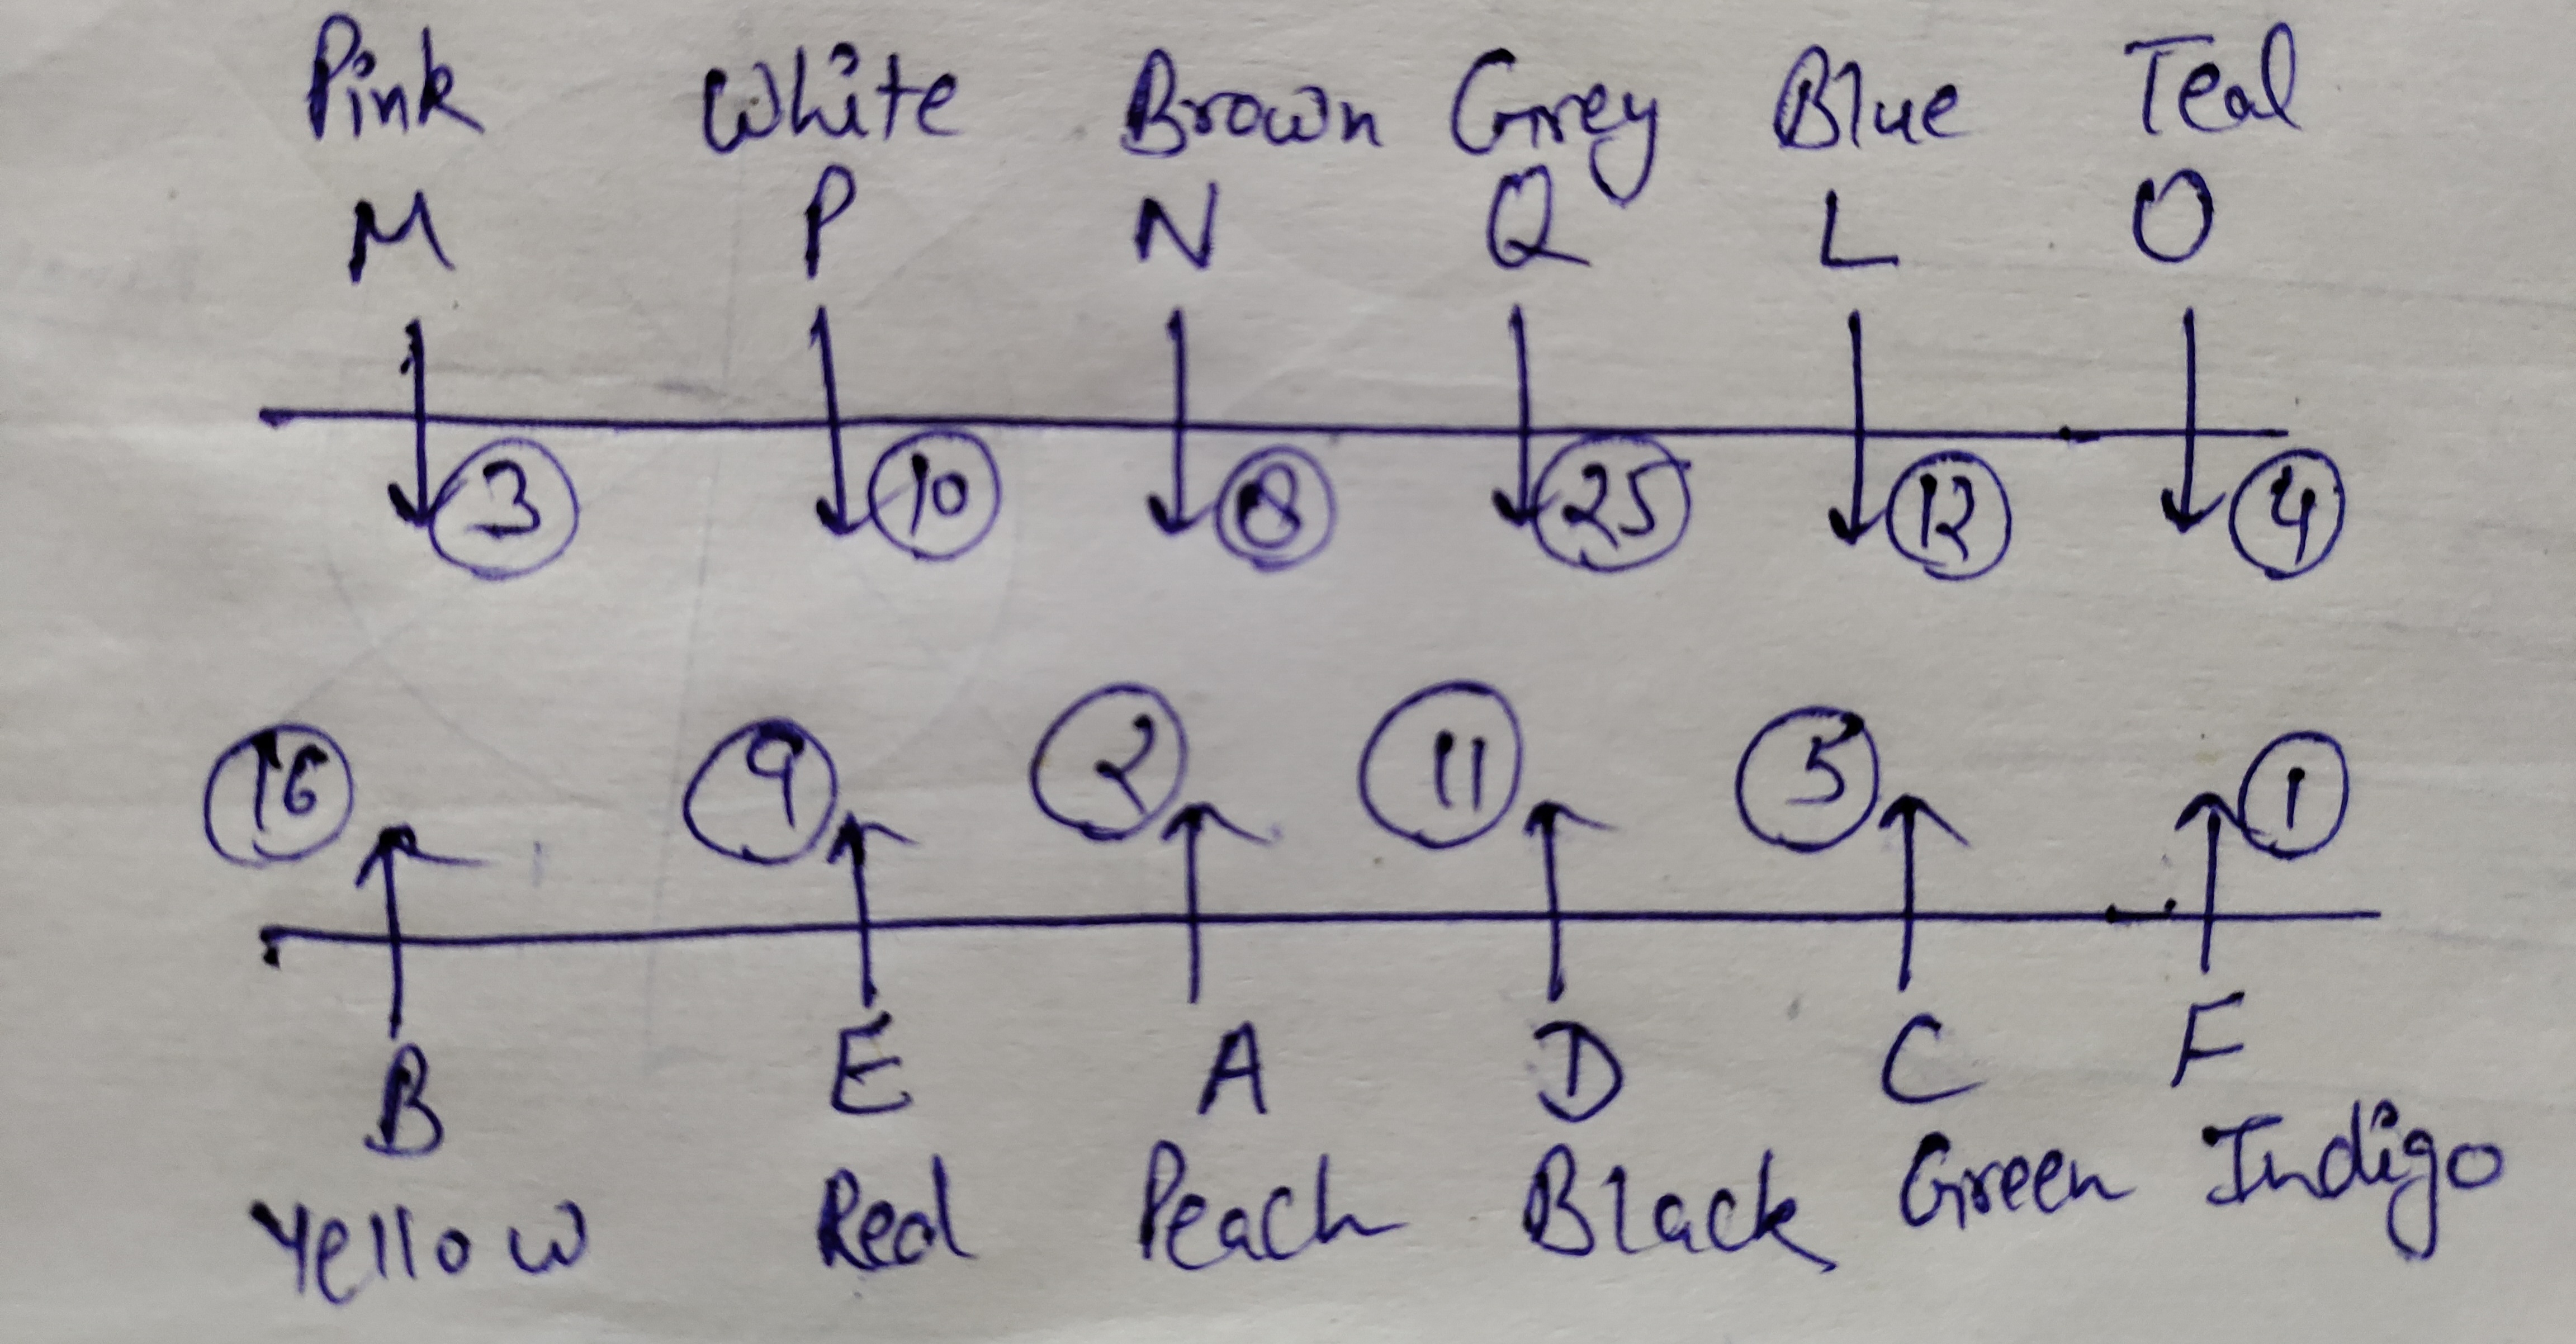 Pink White Brown Grey Blue Teal
M P N Q L O
3 10 8 25 12 4
16 9 2 11 5 1
B E A D C F
Yellow Red Peach Black Green Indigo